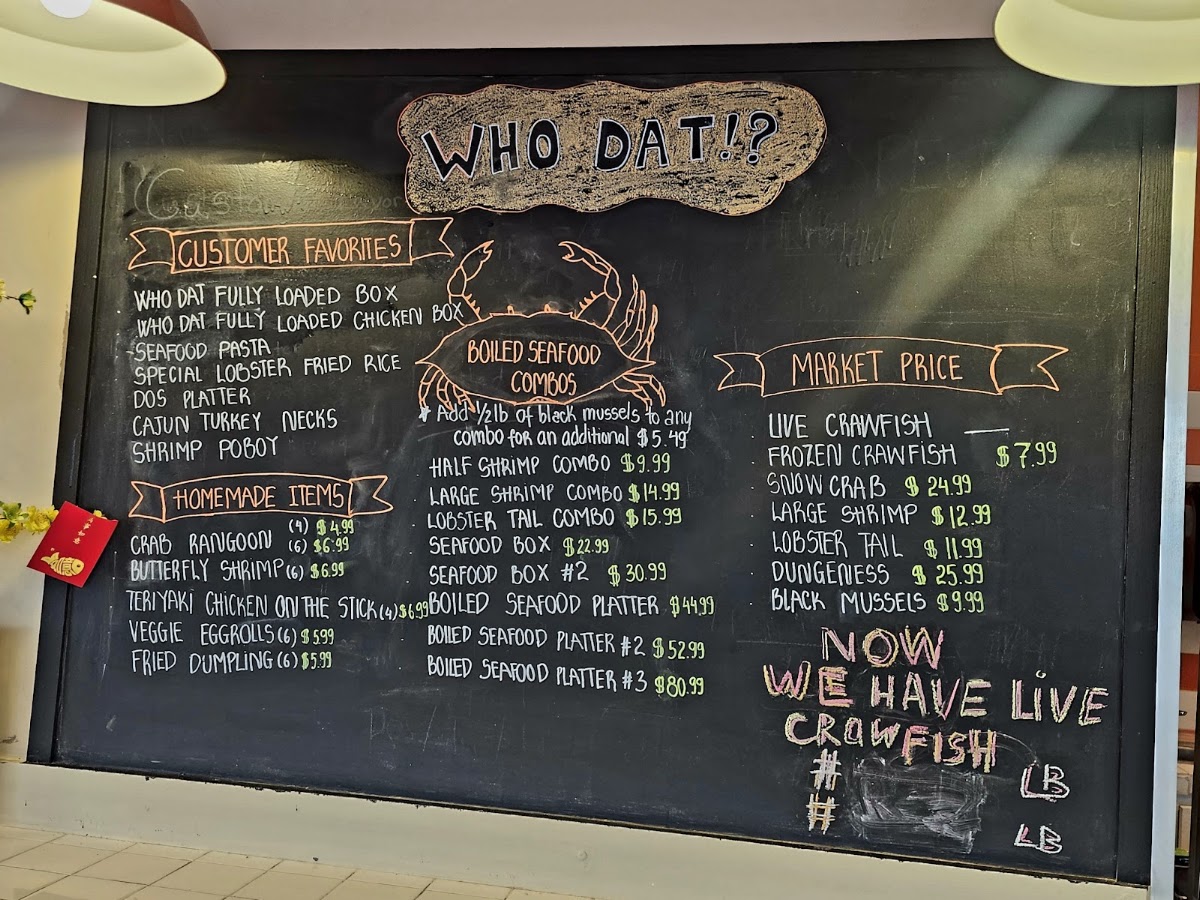 WHO DAT!?
CUSTOMER FAVORITES
WHO DAT FULLY LOADED BOX
WHO DAT FULLY LOADED CHICKEN BOX
SEAFOOD PASTA
SPECIAL LOBSTER FRIED RICE
DOS PLATTER
CAJUN TURKEY NECKS
SHRIMP POBOY
HOMEMADE ITEMS
CRAB RANGOON (4) $4.99
(6) $6.99
BUTTERFLY SHRIMP (6) $6.99
TERIYAKI CHICKEN ON THE STICK (4) $6.99
VEGGIE EGGROLLS (6) $5.99
FRIED DUMPLING (6) $5.99
BOILED SEAFOOD
COMBOS
* Add 1/2 lb of black mussels to any
combo for an additional $5.49
HALF SHRIMP COMBO $9.99
LARGE SHRIMP COMBO $14.99
LOBSTER TAIL COMBO $15.99
SEAFOOD BOX $22.99
SEAFOOD BOX #2 $30.99
BOILED SEAFOOD PLATTER $44.99
BOILED SEAFOOD PLATTER #2 $52.99
BOILED SEAFOOD PLATTER #3 $80.99
MARKET PRICE
LIVE CRAWFISH —
FROZEN CRAWFISH $7.99
SNOW CRAB $24.99
LARGE SHRIMP $12.99
LOBSTER TAIL $11.99
DUNGENESS $25.99
BLACK MUSSELS $9.99
NOW
WE HAVE LIVE
CRAWFISH
# LB
# LB